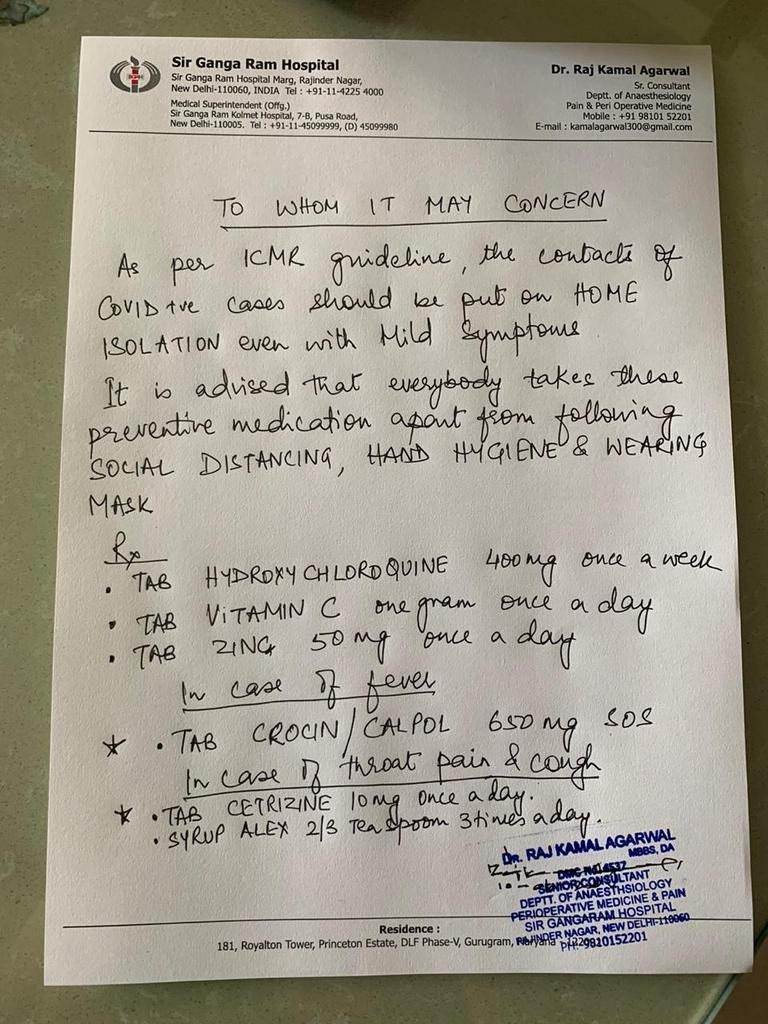 Sir Ganga Ram Hospital
Sir Ganga Ram Hospital Marg, Rajinder Nagar,
New Delhi-110060, INDIA Tel : +91-11-4225 4000
Medical Superintendent (Offg.)
Sir Ganga Ram Kolmet Hospital, 7-B, Pusa Road,
New Delhi-110005. Tel : +91-11-45099999, (D) 45099980
Dr. Raj Kamal Agarwal
Sr. Consultant
Deptt. of Anaesthesiology
Pain & Peri Operative Medicine
Mobile : +91 98101 52201
E-mail : kamalagarwal300@gmail.com
TO WHOM IT MAY CONCERN
As per ICMR guideline, the contacts of
COVID +ve cases should be put on HOME
ISOLATION even with Mild Symptoms
It is advised that everybody takes these
preventive medication apart from following
SOCIAL DISTANCING, HAND HYGIENE & WEARING
MASK
Rx
• TAB HYDROXYCHLOROQUINE 400mg once a week
• TAB VITAMIN C one gram once a day
• TAB ZINC 50 mg once a day
In case of fever
★ • TAB CROCIN/CALPOL 650 mg SOS
In case of throat pain & cough
★ • TAB CETRIZINE 10mg once a day.
• SYRUP ALEX 2/3 Teaspoom 3times a day.
Dr. RAJ KAMAL AGARWAL
MBBS, DA
SENIOR CONSULTANT
DEPTT. OF ANAESTHSIOLOGY
PERIOPERATIVE MEDICINE & PAIN
SIR GANGARAM HOSPITAL
RAJINDER NAGAR, NEW DELHI-110060
PH: 9810152201
Residence :
181, Royalton Tower, Princeton Estate, DLF Phase-V, Gurugram, Haryana